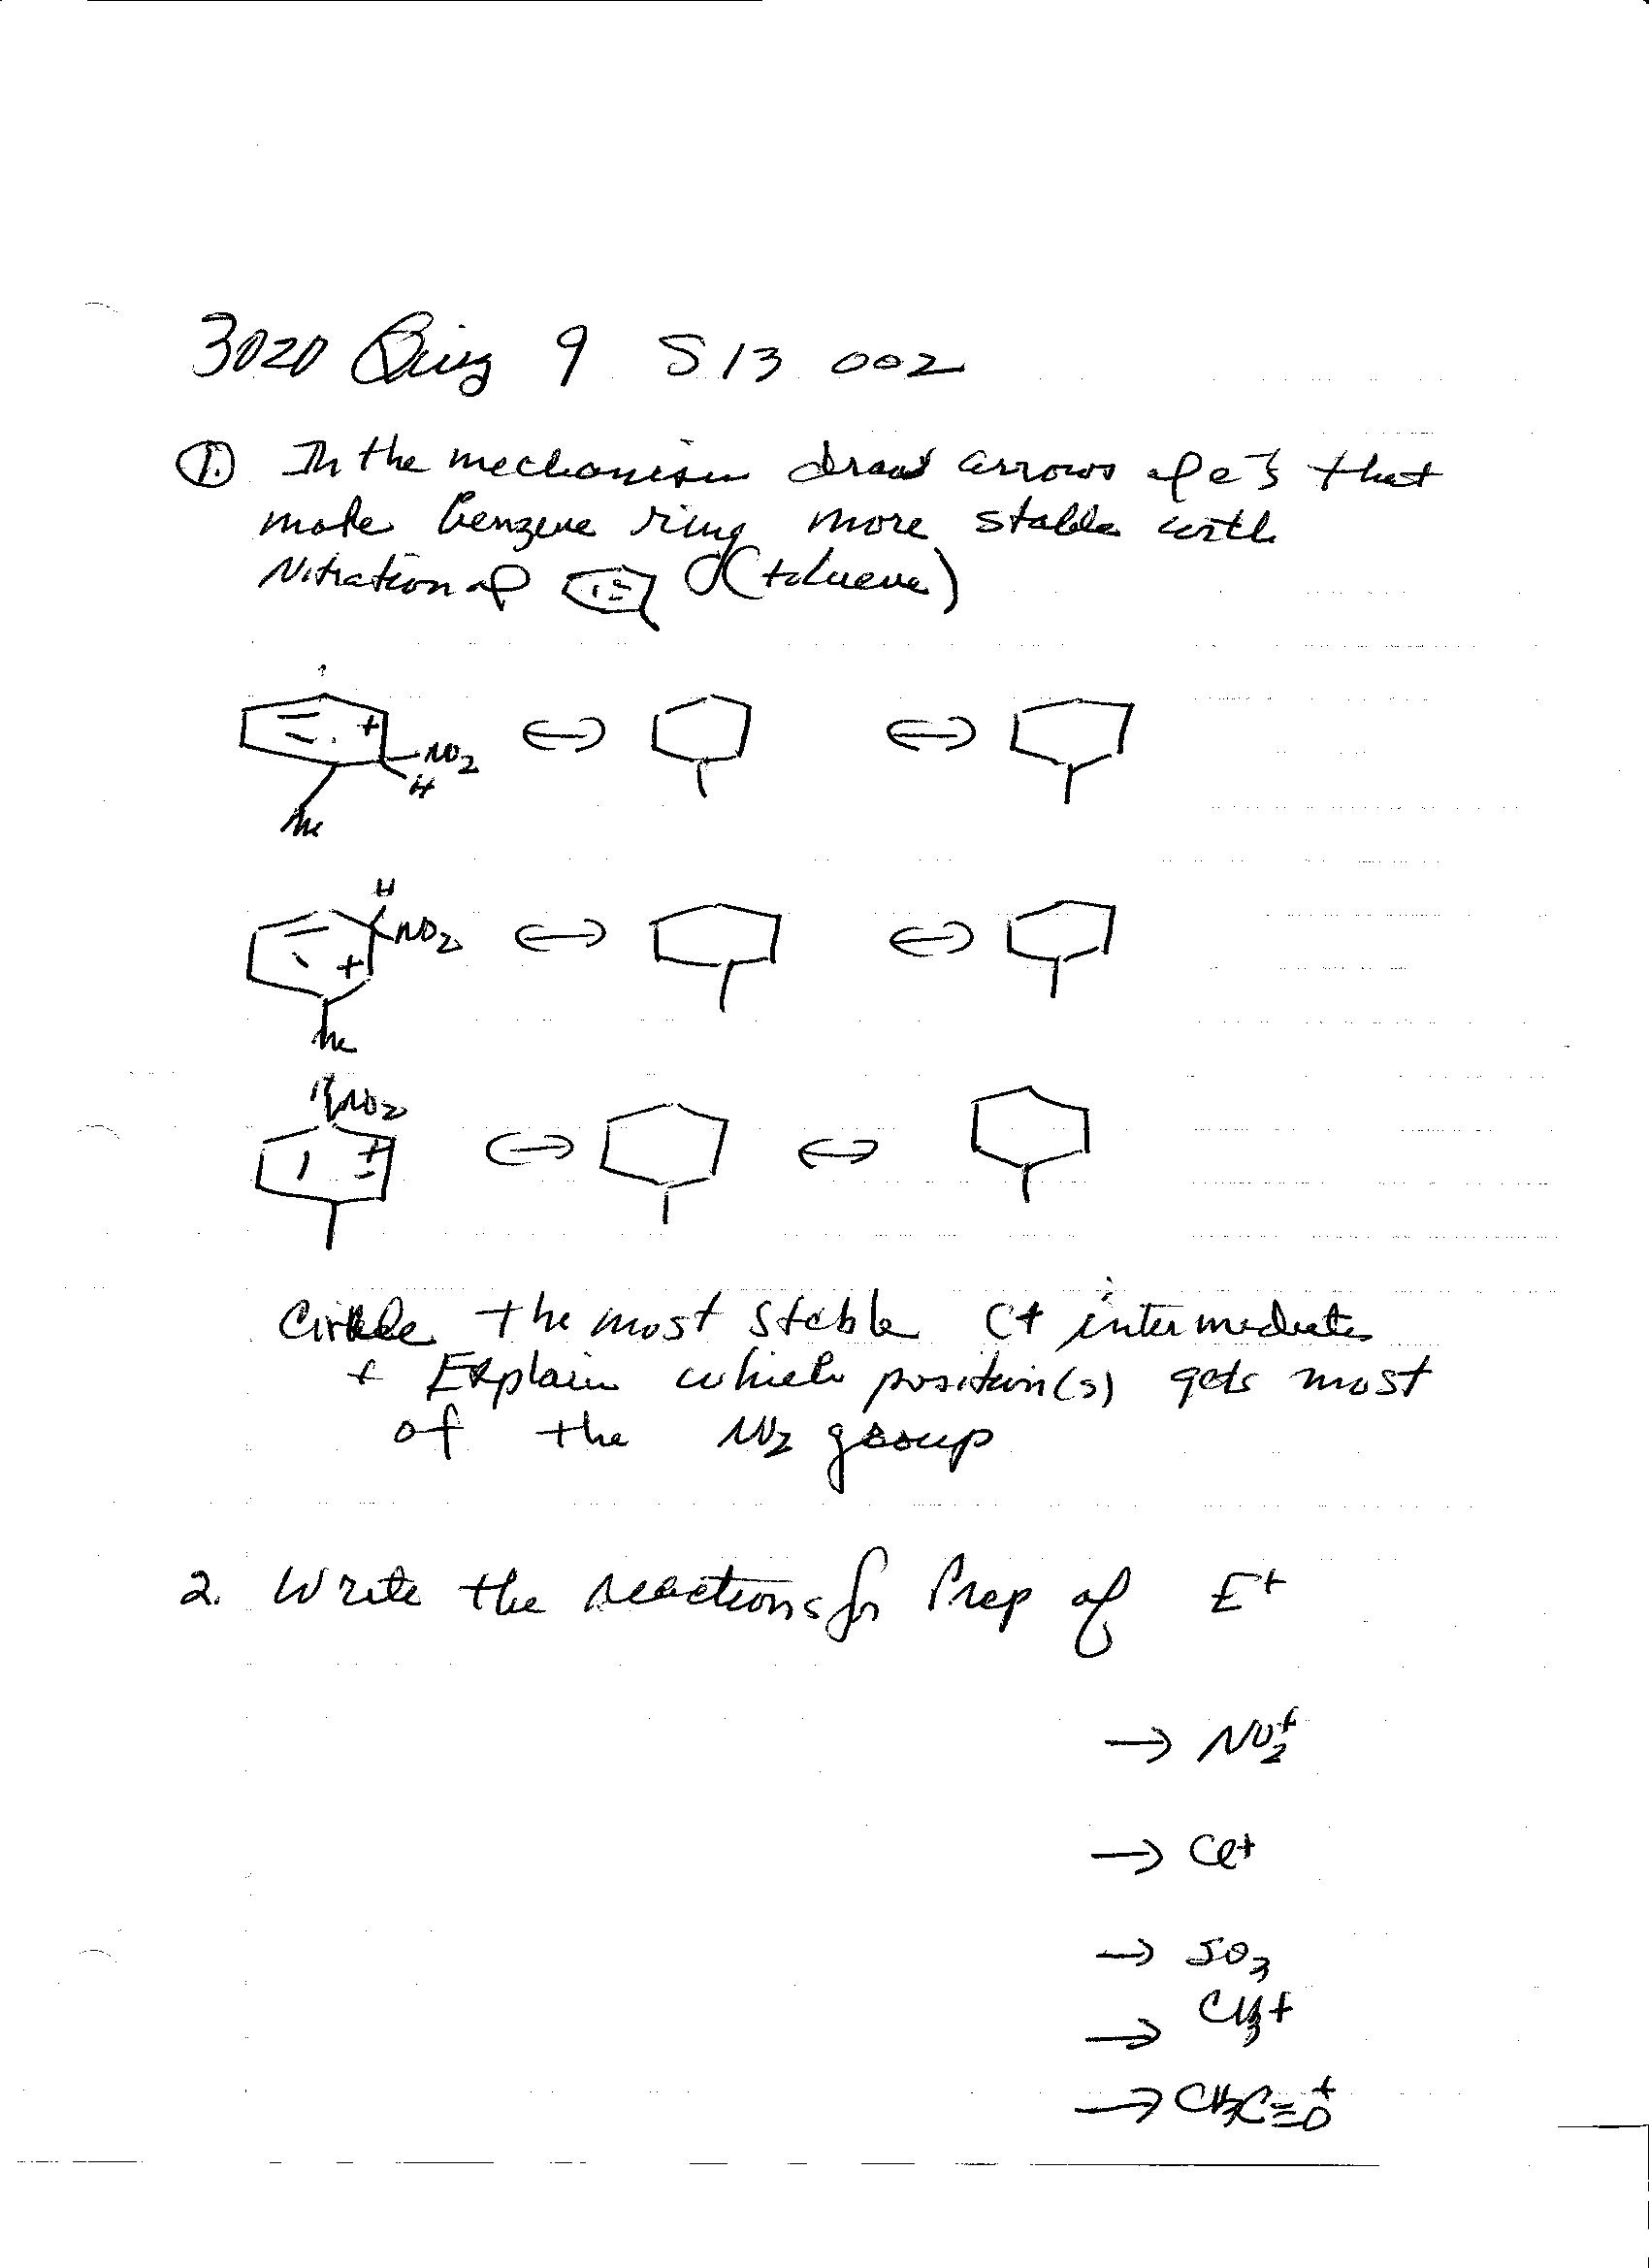 3020 Quiz 9 S13 002
1. In the mechanism draw arrows of e⁻s that
make benzene ring more stable with
Nitration of (toluene)
+ NO2 H ↔ ↔
Me
H
NO2 + ↔ ↔
Me
H NO2
+ ↔ ↔
Circle the most stable C+ intermediates
+ Explain which position(s) gets most
of the NO2 group
2. Write the reactions for Prep of E+
→ NO2+
→ Cl+
→ SO3
→ CH3+
→ CH3C≡O+